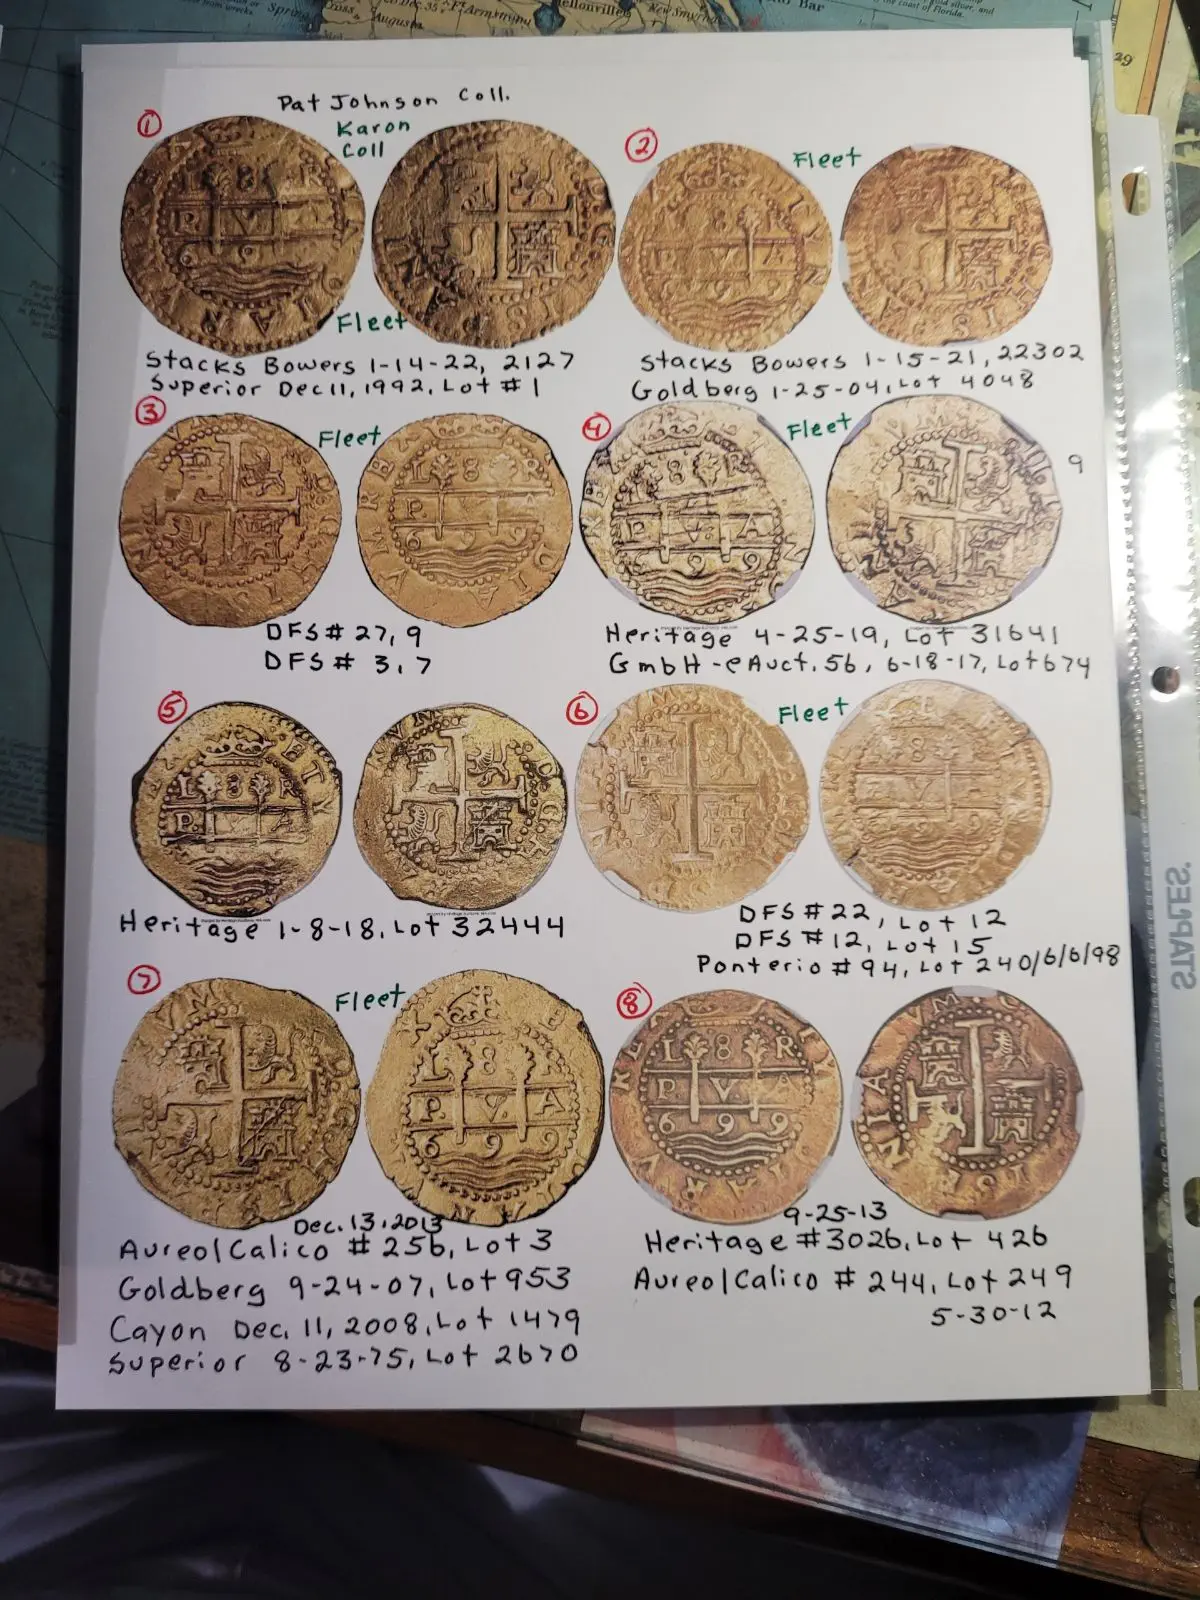 Pat Johnson Coll.
① Karon
Coll
Fleet
Stacks Bowers 1-14-22, 2127
Superior Dec 11, 1992, Lot #1
② Fleet
Stacks Bowers 1-15-21, 22302
Goldberg 1-25-04, Lot 4048
③ Fleet
L 8 R
P V A
699
DFS# 27, 9
DFS# 3, 7
④ Fleet
9
L 8 R
P V A
699
Heritage 4-25-19, Lot 31641
GmbH-eAuct. 56, 6-18-17, Lot 674
⑤
L 8 R
P. V A
Heritage 1-8-18, Lot 32444
⑥ Fleet
DFS #22, Lot 12
DFS #12, Lot 15
Ponterio #94, Lot 240/6/6/98
⑦ Fleet
L 8 R
P. V. A
699
Dec. 13, 2013
Aureo/Calico #256, Lot 3
Goldberg 9-24-07, Lot 953
Cayon Dec. 11, 2008, Lot 1479
Superior 8-23-75, Lot 2670
⑧
L 8 R
P. V. A
699
9-25-13
Heritage #3026, Lot 426
Aureo/Calico #244, Lot 249
5-30-12
STAPLES
29